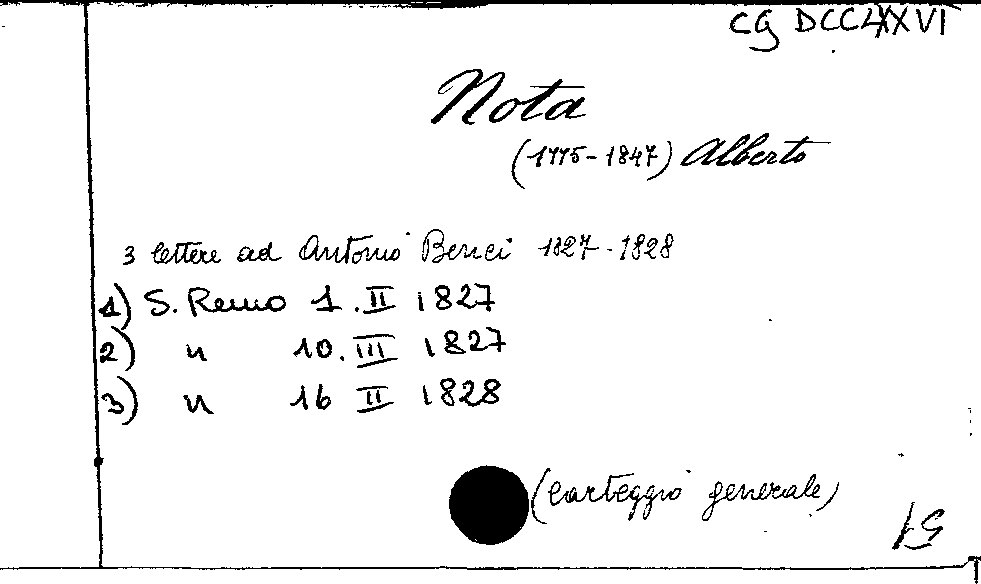 CG DCCLXXVI
Nota
(1775-1847) Alberto
3 lettere ad Antonio Benci 1827-1828
1) S. Remo 1.II 1827
2) " 10.III 1827
3) " 16 II 1828
(carteggio generale)